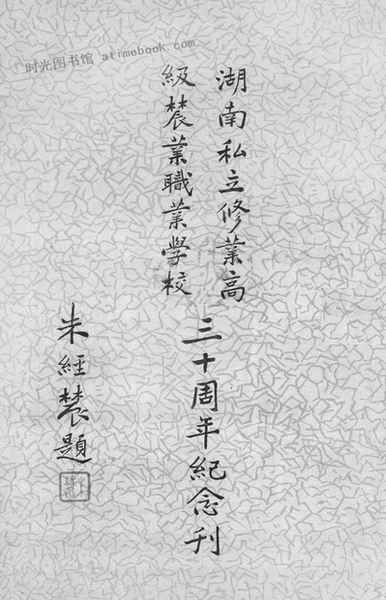 时光图书馆 atimebook.com
湖南私立修业高
級農業職業學校
三十周年紀念刊
朱經農題